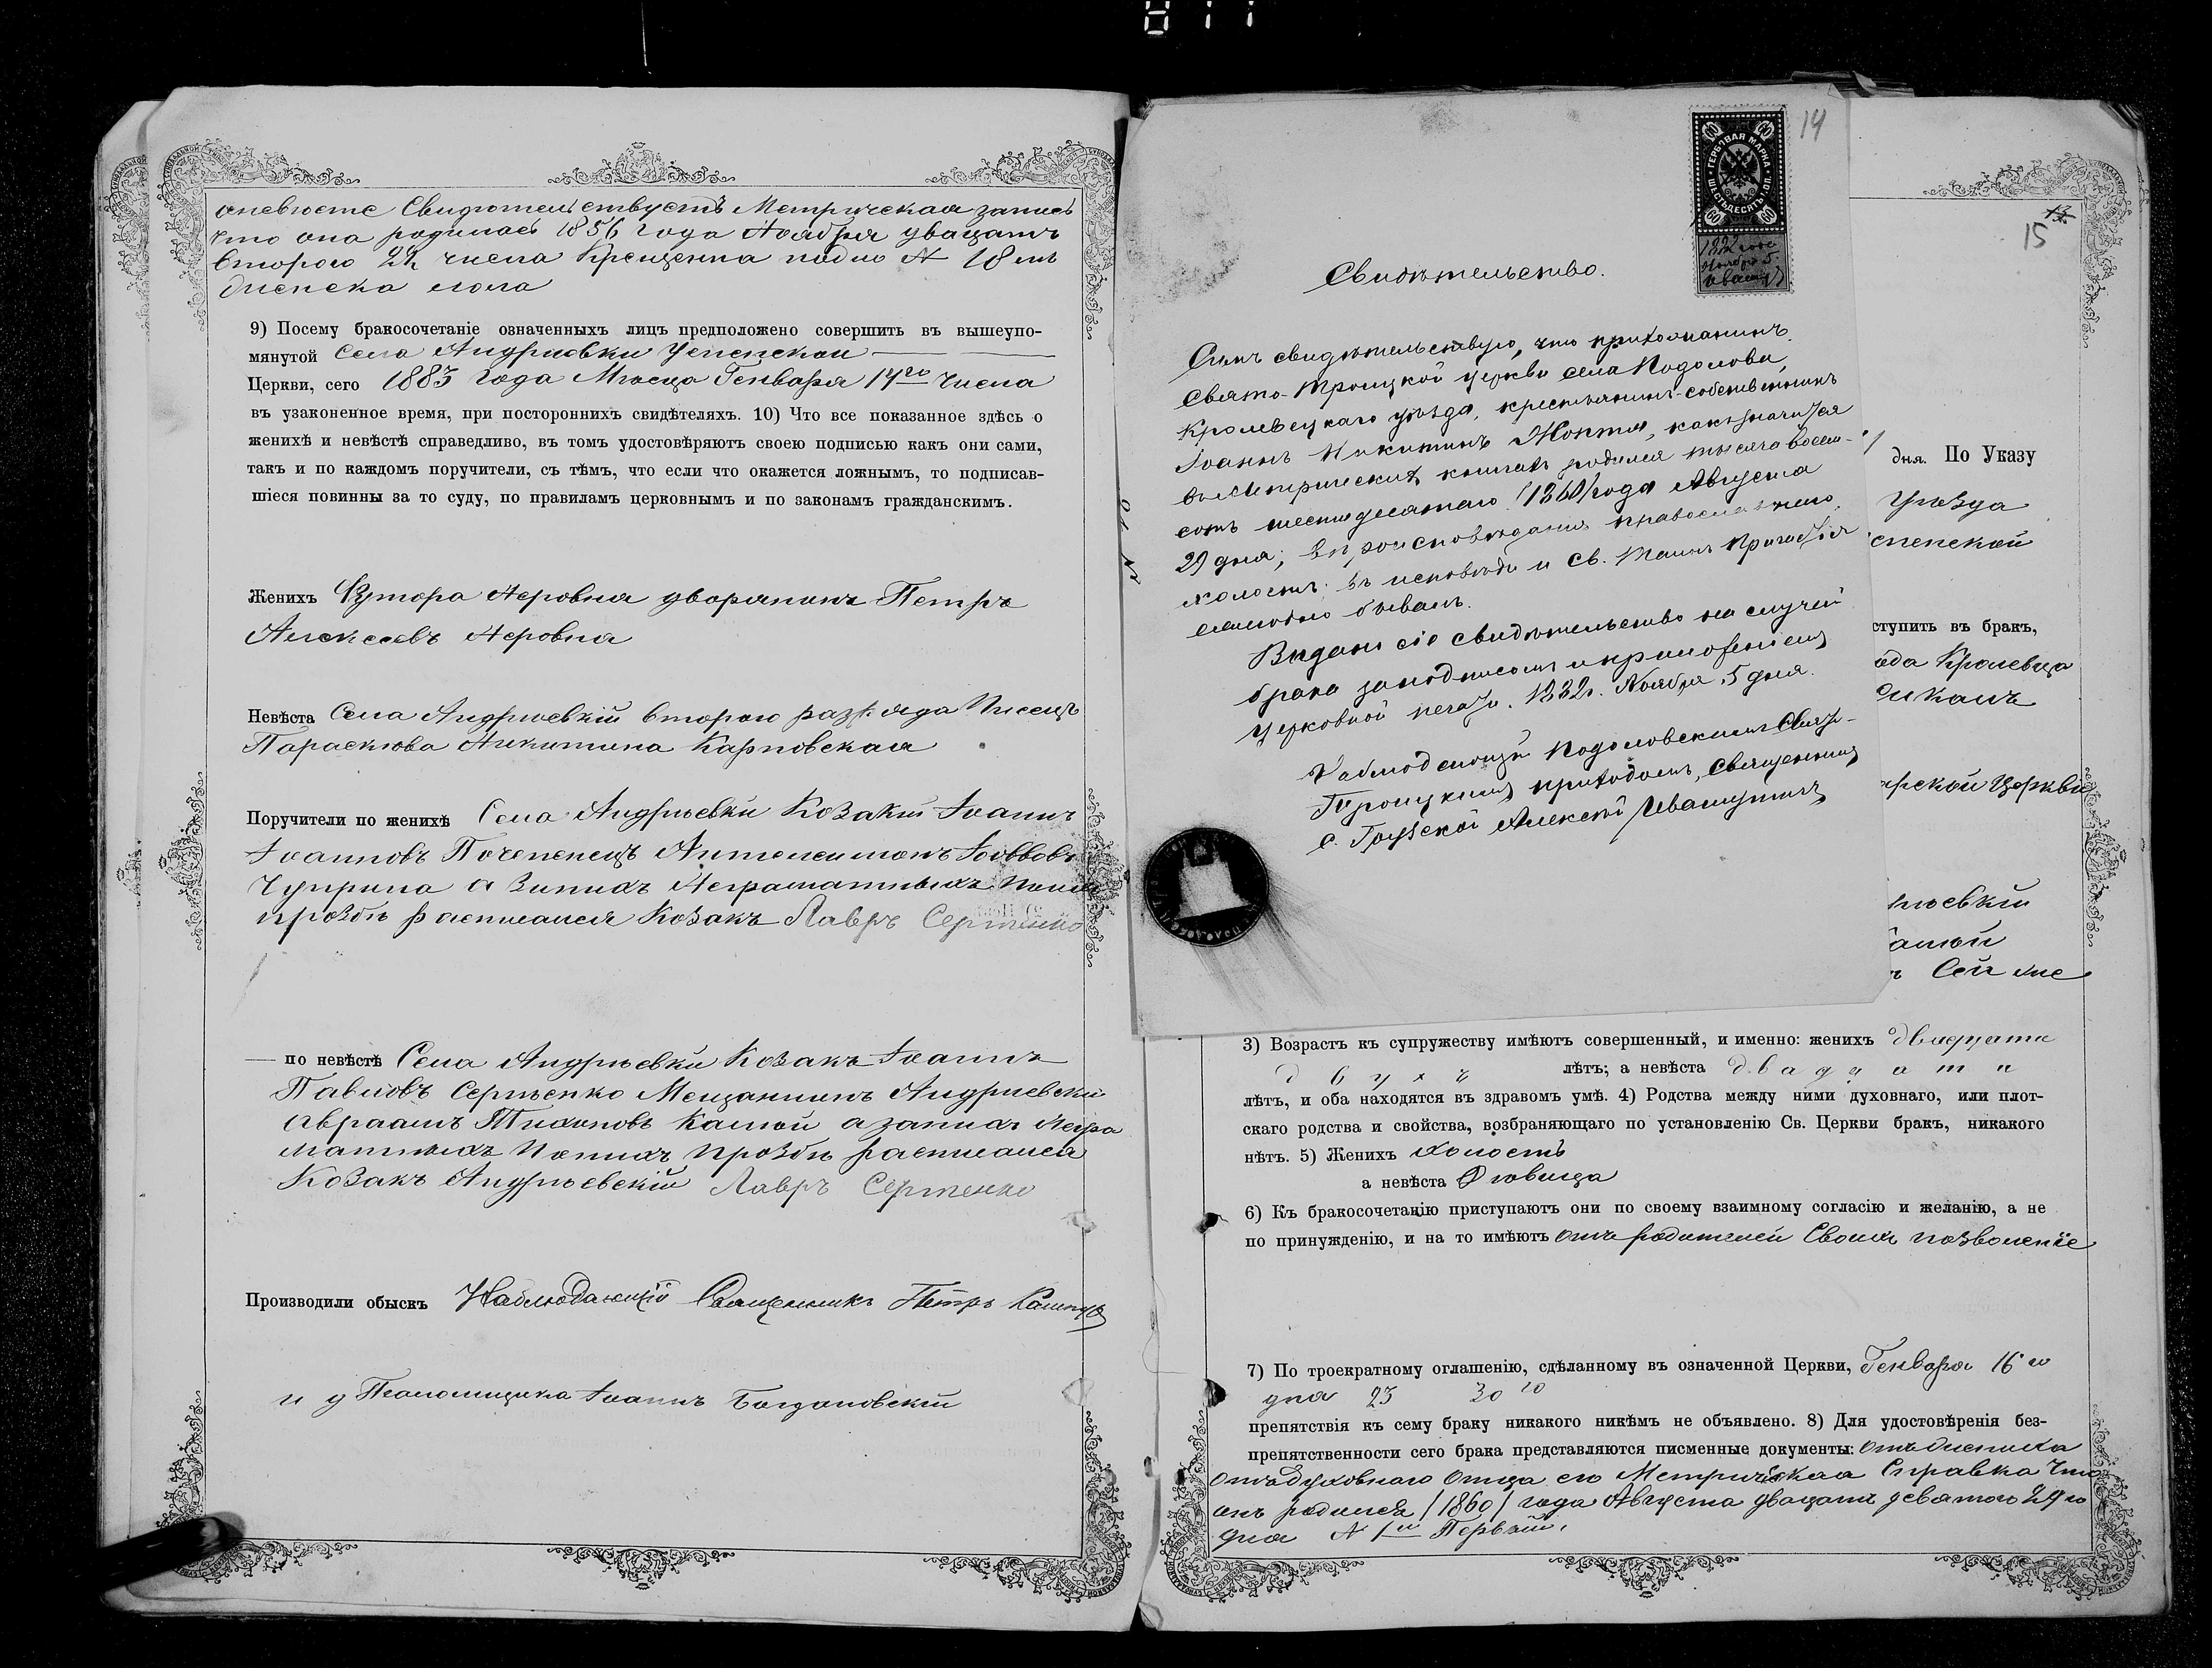 а невесте Свидетельствуетъ Метрическая запись
что она родилась 1856 года Ноября двацатъ
второго 22 числа Крещенна подъ N 18 мъ
9) Посему бракосочетаніе означенныхъ лицъ предположено совершить въ вышеупо-
мянутой Села Андрѣевки Успенской
Церкви, сего 1883 года Мѣсяца Генваря 14го числа
въ узаконенное время, при постороннихъ свидѣтеляхъ. 10) Что все показанное здѣсь о
женихѣ и невѣстѣ справедливо, въ томъ удостовѣряютъ своею подписью какъ они сами,
такъ и по каждомъ поручители, съ тѣмъ, что если что окажется ложнымъ, то подписав-
шіеся повинны за то суду, по правиламъ церковнымъ и по законамъ гражданскимъ.
Женихъ Хутора Неровня дворянинъ Петръ
Алексеевъ Неровня
Невѣста Села Андрѣевкій второго разряда Писецъ
Параскѣва Никитина Карповская
Поручители по женихѣ Села Андрѣевки Козакъ Іоаннъ
Іоанновъ Почепенецъ
Чуприна а Неграматныхъ
прозбѣ расписался Козакъ Лавръ Сергѣенко
по невѣстѣ Села Андрѣевки Козакъ Іоаннъ
Павловъ Сергѣенко Мещанинъ Андрѣевскій
Авраамъ Тихоновъ а за них Негра
матныхъ прозбѣ расписался
Козакъ Андрѣевскій Лавръ Сергѣенко
Производили обыскъ Наблюдающій Священникъ Петръ
и д Псаломщика Іоаннъ Богдановскій
14
ГЕРБОВАЯ МАРКА
ШЕСТЬДЕСЯТЪ КОП.
60 60
60 60
1882 года
Ноября 5.
Свидѣтельство.
Симъ свидѣтельствую, что прихожанинъ
Свято-Троицкой церкви села Подолова,
Кролевецкаго уѣзда, крестьянинъ-собственникъ
Іоаннъ Никитинъ Жовтя, какъ значится
въ Метрическихъ книгахъ родился тысяча восем-
сотъ шестидесятаго /1860/ года Августа
29 дня; вѣроисповѣданія православнаго,
холостъ; въ исповѣди и Св. Таинъ Причастія
ежегодно бывалъ.
Выдано сіе свидѣтельство на случай
брака за подписомъ и приложеніемъ
церковной печати. 1882 г. Ноября 5 дня.
Наблюдающій Подоловскимъ Свято-
Троицкимъ приходомъ, Священникъ
с. Алексѣй Ивашутичъ
15
дня. По Указу
Уѣзда
спенской
ступить въ бракъ,
ода Кролевца
арской Церкви
рѣевкій
3) Возрастъ къ супружеству имѣютъ совершенный, и именно: женихъ двадцати
двухъ лѣтъ; а невѣста двадцати
лѣтъ, и оба находятся въ здравомъ умѣ. 4) Родства между ними духовнаго, или плот-
скаго родства и свойства, возбраняющаго по установленію Св. Церкви бракъ, никакого
нѣтъ. 5) Женихъ холостъ
а невѣста Дѣвица
6) Къ бракосочетанію приступаютъ они по своему взаимному согласію и желанію, а не
по принужденію, и на то имѣютъ отъ родителей Своихъ позволеніе
7) По троекратному оглашенію, сдѣланному въ означенной Церкви, Генваря 16 го
дня 23 30 го
препятствія къ сему браку никакого никѣмъ не объявлено. 8) Для удостовѣренія без-
препятственности сего брака представляются писменные документы:
отъ духовнаго Отца его Метрическая Справка что
онъ родился /1860/ года Августа двацатъ девятого 29 го
дня N 1й Первый.